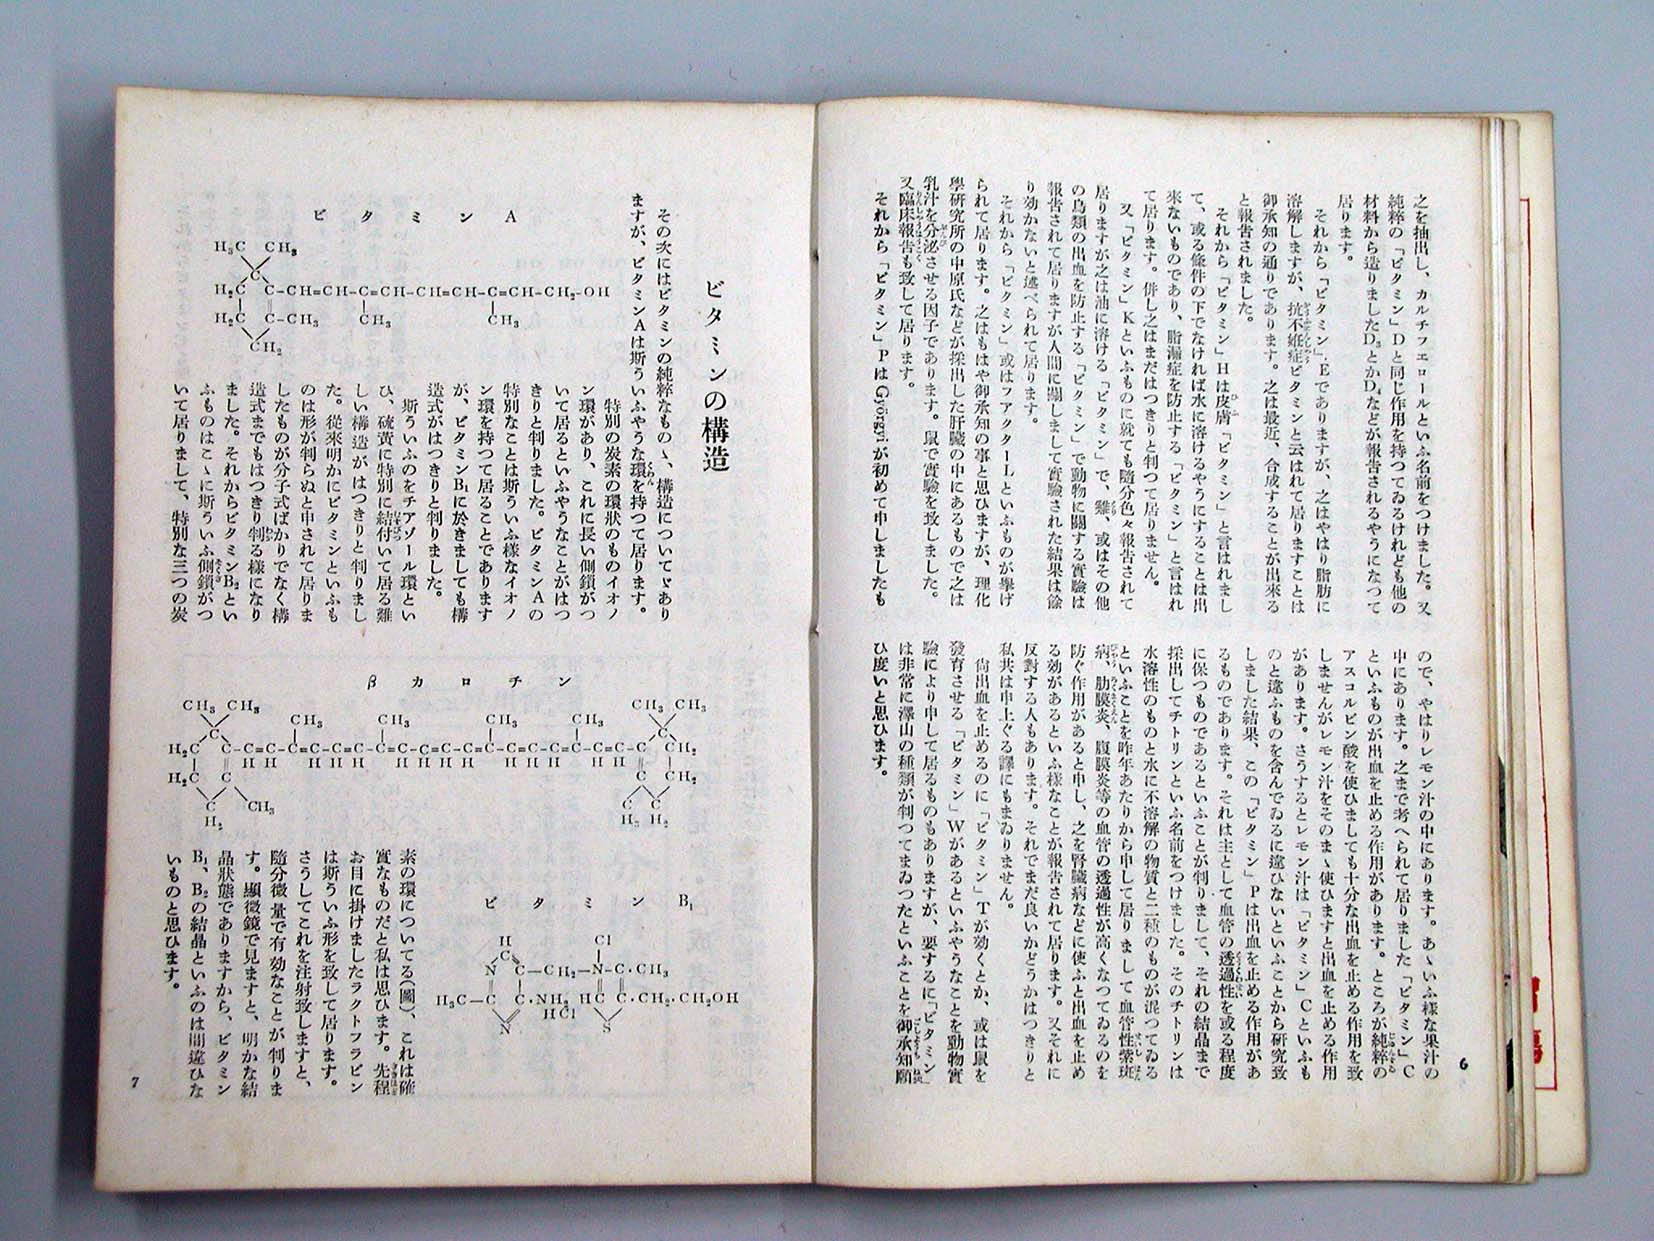 之を抽出し、カルチフエロールといふ名前をつけました。又
純粹の「ビタミン」Dと同じ作用を持つてゐるけれども他の
材料から造りましたD₃とかD₄などが報告されるやうになつて
居ります。
それから「ビタミン」Eでありますが、之はやはり脂肪に
溶解しますが、抗不姙症ビタミンと云はれて居りますことは
御承知の通りであります。之は最近、合成することが出來る
と報告されました。
それから「ビタミン」Hは皮膚「ビタミン」と言はれまし
て、或る條件の下でなければ水に溶けるやうにすることは出
來ないものであり、脂漏症を防止する「ビタミン」と言はれ
て居ります。併し之はまだはつきりと判つて居りません。
又「ビタミン」Kといふものに就ても隨分色々報告されて
居りますが之は油に溶ける「ビタミン」で、雞、或はその他
の鳥類の出血を防止する「ビタミン」で動物に關する實驗は
報告されて居りますが人間に關しまして實驗された結果は餘
り効かないと述べられて居ります。
それから「ビタミン」或はフアクターLといふものが擧げ
られて居ります。之はもはや御承知の事と思ひますが、理化
學研究所の中原氏などが採出した肝臓の中にあるもので之は
乳汁を分泌させる因子であります。鼠で實驗を致しました。
又臨床報告も致して居ります。
それから「ビタミン」PはGyörgyiが初めて申しましたも
ので、やはりレモン汁の中にあります。あゝいふ樣な果汁の
中にあります。之まで考へられて居りました「ビタミン」C
といふものが出血を止める作用があります。ところが純粹の
アスコルビン酸を使ひましても十分な出血を止める作用を致
しませんがレモン汁をそのまゝ使ひますと出血を止める作用
があります。さうするとレモン汁は「ビタミン」Cといふも
のと違ふものを含んでゐるに違ひないといふことから研究致
しました結果、この「ビタミン」Pは出血を止める作用があ
るものであります。それは主として血管の透過性を或る程度
に保つものであるといふことが判りまして、それの結晶まで
採出してチトリンといふ名前をつけました。そのチトリンは
水溶性のものと水に不溶解の物質と二種のものが混つてゐる
といふことを昨年あたりから申して居りまして血管性紫斑
病、肋膜炎、腹膜炎等の血管の透過性が高くなつてゐるのを
防ぐ作用があると申し、之を腎臓病などに使ふと出血を止め
る効があるといふ樣なことが報告されて居ります。又それに
反對する人もあります。それでまだ良いかどうかはつきりと
私共は申上ぐる譯にもまゐりません。
尙出血を止めるのに「ビタミン」Tが効くとか、或は鼠を
發育させる「ビタミン」Wがあるといふやうなことを動物實
驗により申して居るものもありますが、要するに「ビタミン」
は非常に澤山の種類が判つてまゐつたといふことを御承知願
ひ度いと思ひます。
6
ビタミンの構造
その次にはビタミンの純粹なものゝ、構造についてゞあり
ますが、ビタミンAは斯ういふやうな環を持つて居ります。
特別の炭素の環狀のものイオノ
ン環があり、これに長い側鎖がつ
いて居るといふやうなことがはつ
きりと判りました。ビタミンAの
特別なことは斯ういふ樣なイオノ
ン環を持つて居ることであります
が、ビタミンB₁に於きましても構
造式がはつきりと判りました。
斯ういふのをチアゾール環とい
ひ、硫黃に特別に結付いて居る雖
しい構造がはつきりと判りまし
た。從來明かにビタミンといふも
のは形が判らぬと申されて居りま
したものが分子式ばかりでなく構
造式までもはつきり判る樣になり
ました。それからビタミンB₂とい
ふものはこゝに斯ういふ側鎖がつ
いて居りまして、特別な三つの炭
ビタミンA
H₃C CH₃
C
H₂C C–CH=CH–C=CH–CH=CH–C=CH–CH₂–OH
H₂C C–CH₃ CH₃ CH₃
CH₂
βカロチン
CH₃ CH₃ CH₃ CH₃ CH₃ CH₃ CH₃ CH₃
H₂C C–C=C–C=C–C=C–C=C–C=C–C=C–C=C–C=C–C=C–C CH₂
H₂C C H H H H H H H H H H H H H H C CH₂
C CH₃ C C
H₂ H₃ H₂
ビタミンB₁
H Cl
C
N C–CH₂–N–C·CH₃
H₃C–C C·NH₂ HC C·CH₂·CH₂OH
N HCl S
素の環についてる(圖)、これは確
實なものだと私は思ひます。先程
お目に掛けましたラクトフラビン
は斯ういふ形を致して居ります。
さうしてこれを注射致しますと、
隨分微量で有効なことが判りま
す。顯微鏡で見ますと、明かな結
晶狀態でありますから、ビタミン
B₁、B₂の結晶といふのは間違ひな
いものと思ひます。
7